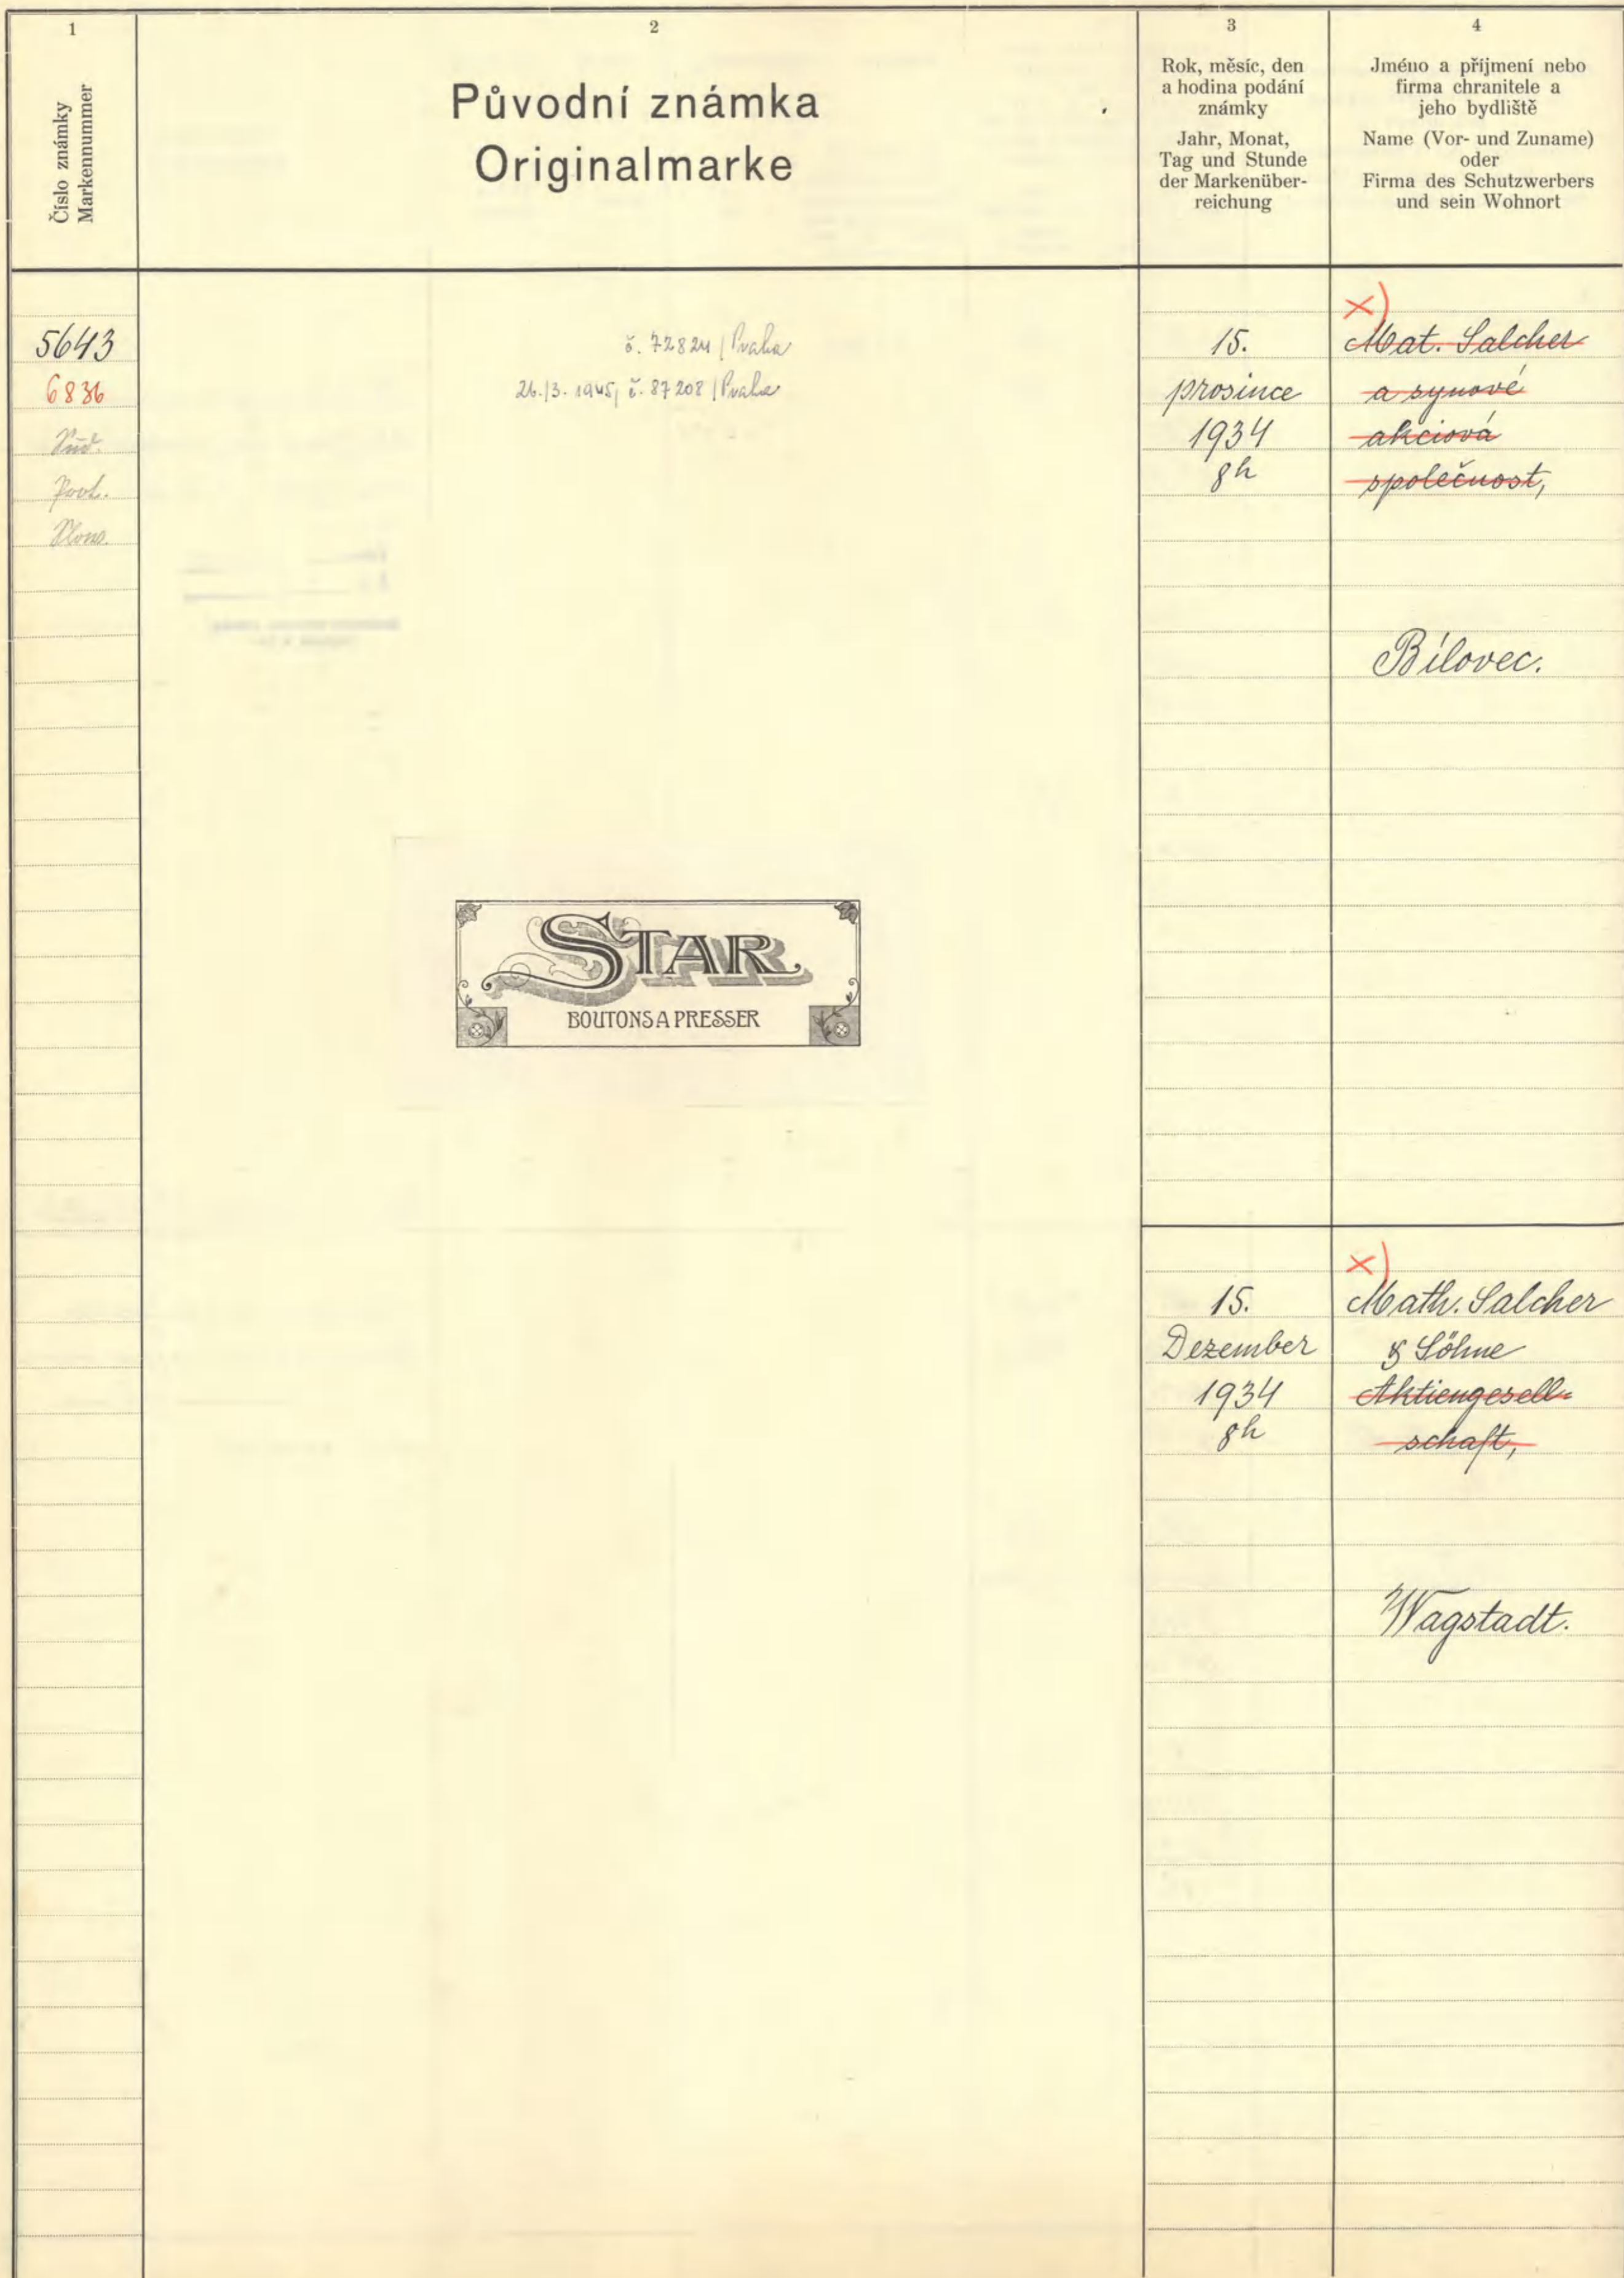 1
Číslo známky
Markennummer
2
Původní známka
Originalmarke
3
Rok, měsíc, den
a hodina podání
známky
Jahr, Monat,
Tag und Stunde
der Markenüber-
reichung
4
Jméno a příjmení nebo
firma chranitele a
jeho bydliště
Name (Vor- und Zuname)
oder
Firma des Schutzwerbers
und sein Wohnort
5643
6836
Prot.
č. 72824 / Praha
26./3. 1945, č. 87208 / Praha
STAR
BOUTONS A PRESSER
15.
prosince
1934
8h
x)
Mat. Salcher
a synové
akciová
společnost,
Bílovec.
15.
Dezember
1934
8h
x)
Math. Salcher
& Söhne
Aktiengesell=
schaft,
Wagstadt.